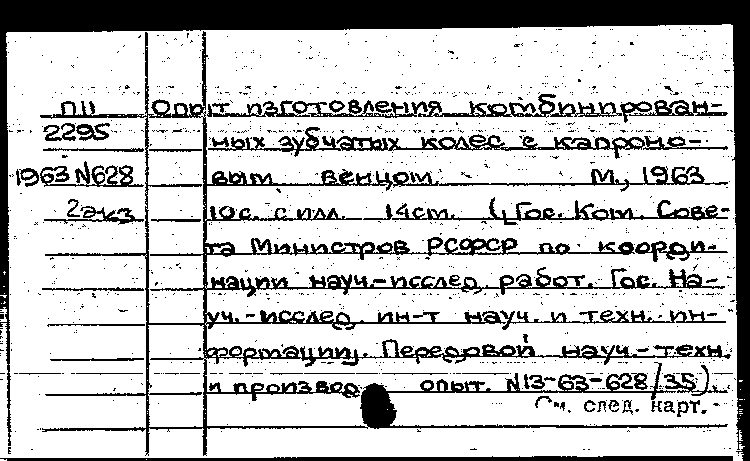 ПII Опыт изготовления комбинирован-
2295 ных зубчатых колес с капроно-
1963 N628 вым венцом. М., 1963
2экз 10с. с илл. 14см. (Гос. Ком. Сове-
та Министров РСФСР по коорди-
нации науч.-исслед. работ. Гос. На-
уч.-исслед. ин-т науч. и техн. ин-
формации. Передовой науч.-техн.
и производ. опыт. N13-63-628/35).
См. след. карт.